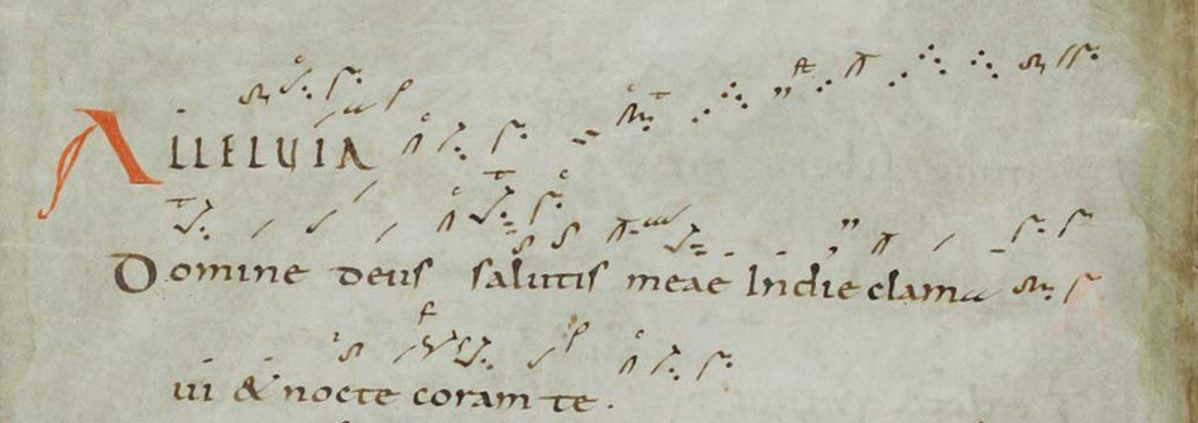 ALLELUIA
Domine deus salutis meae In die clama
ui & nocte coram te.